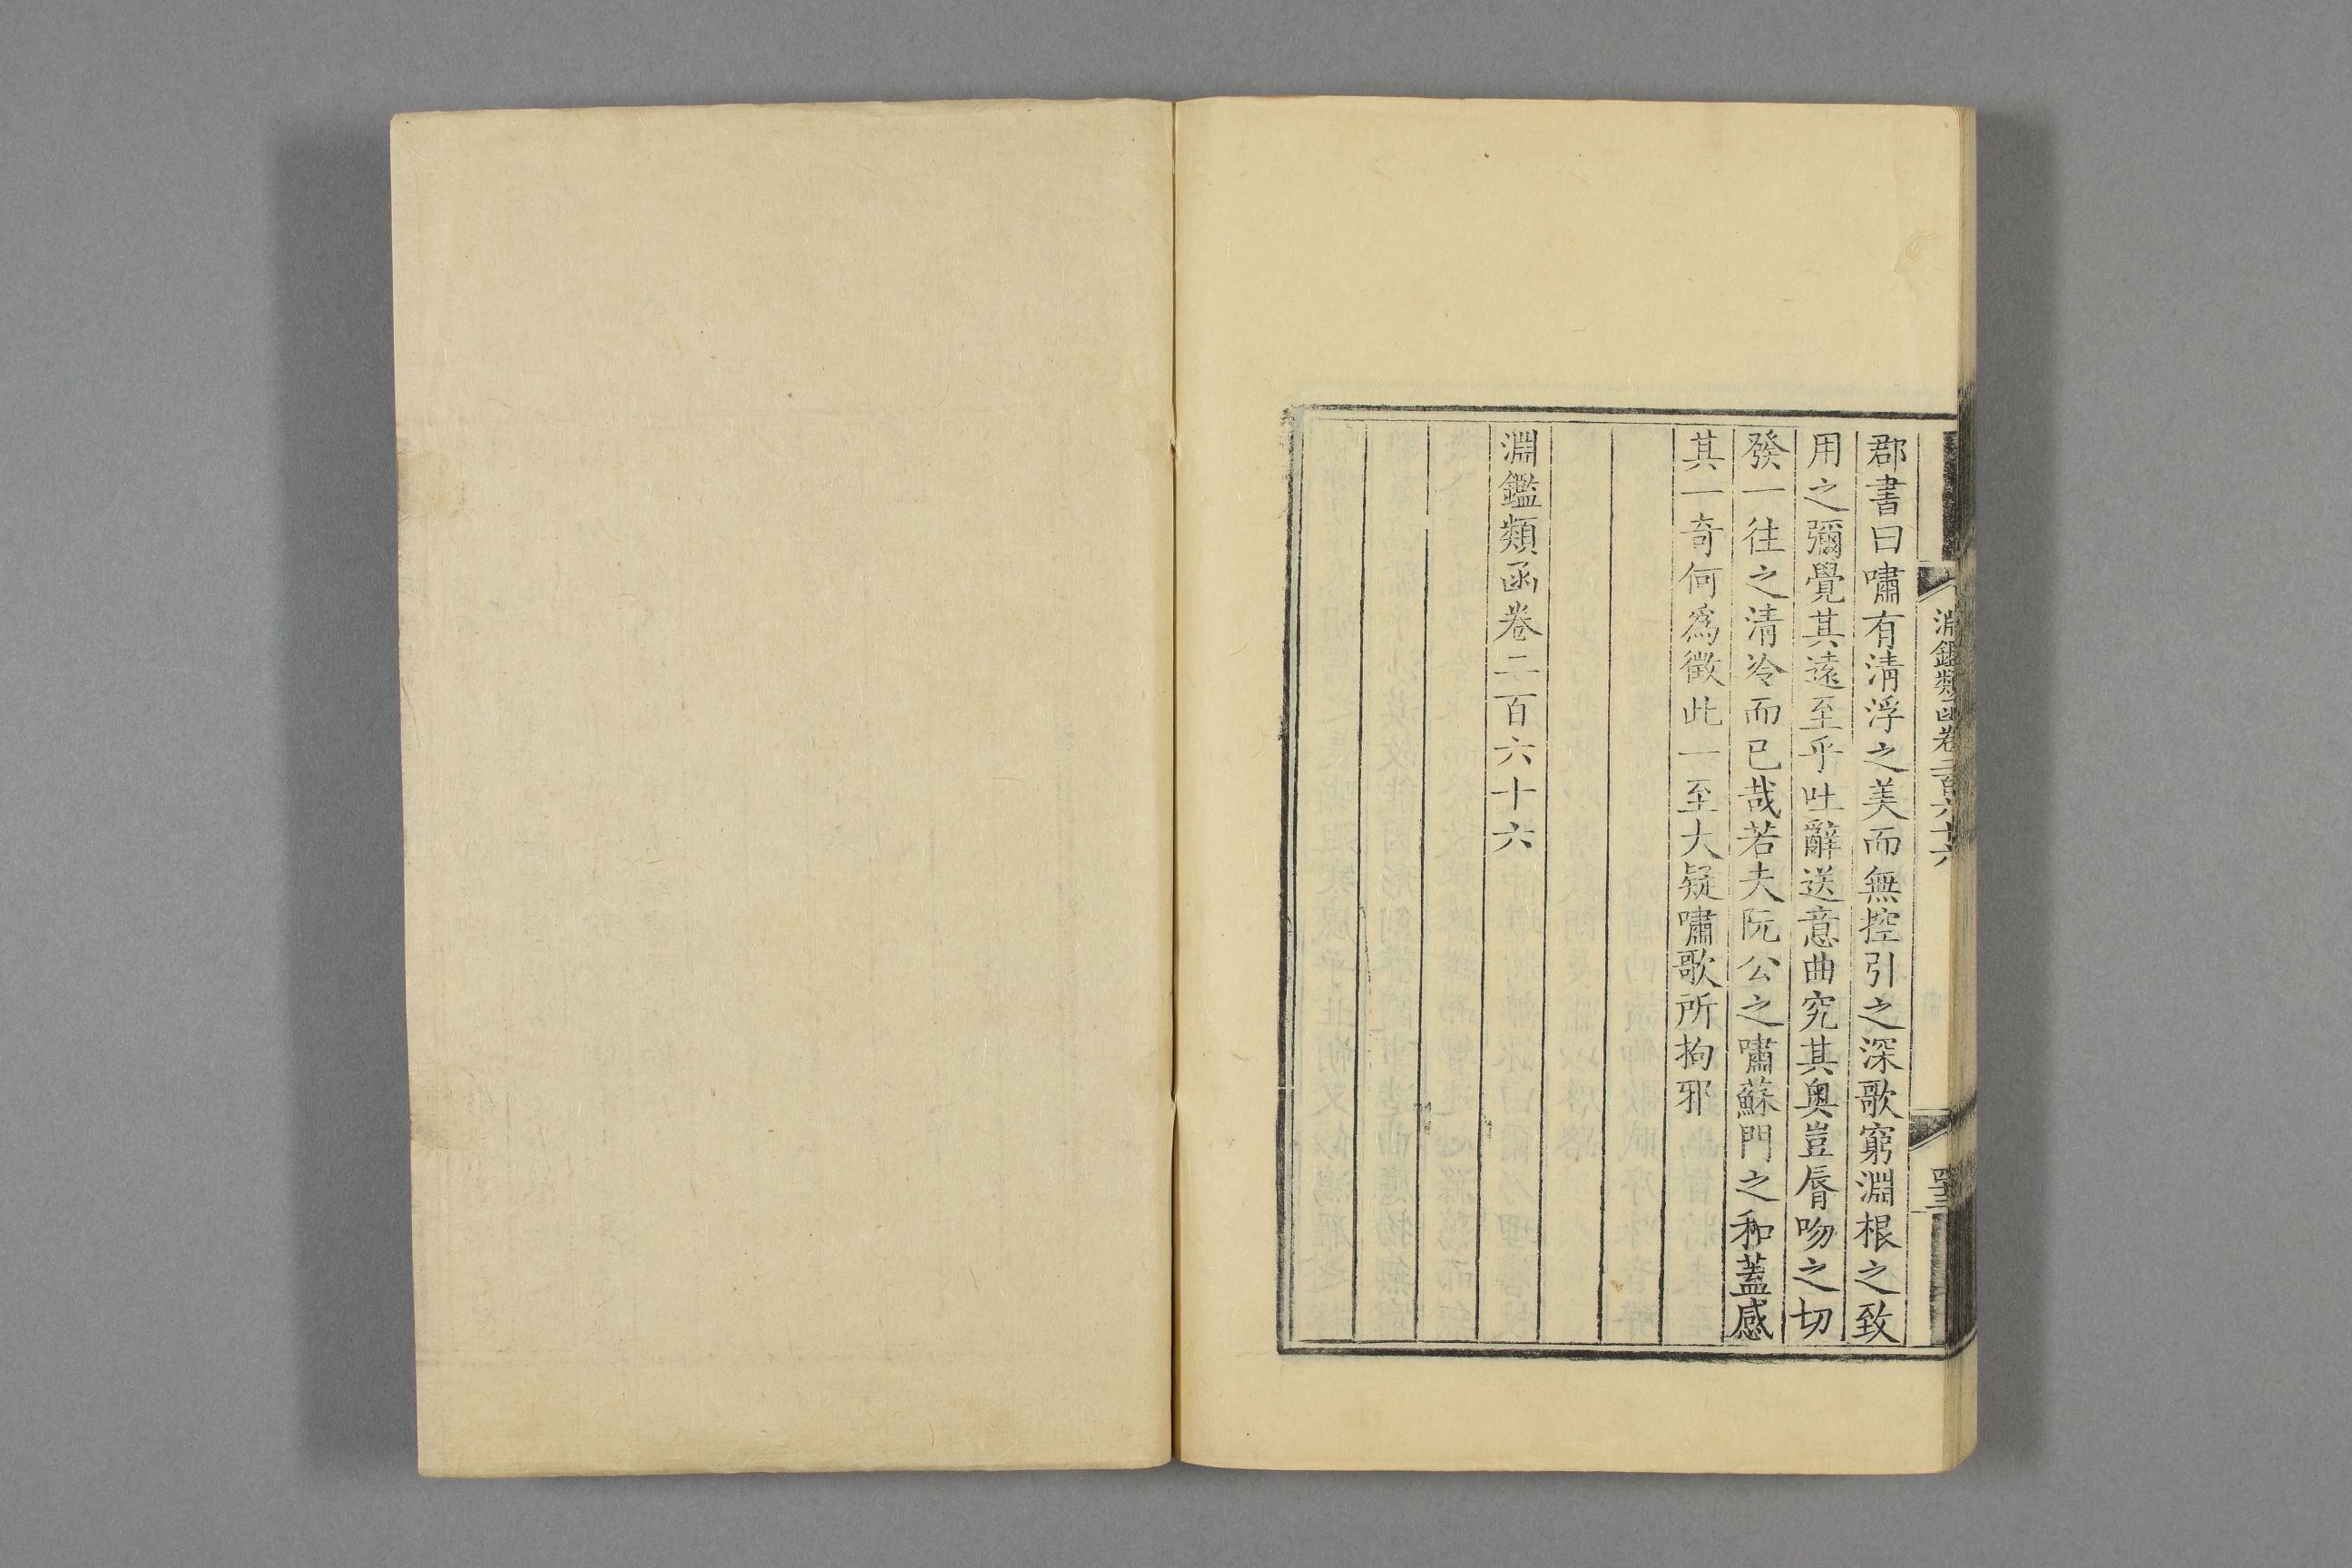 淵鑑類函卷二百六十六
郡書曰嘯有清浮之美而無控引之深歌窮淵根之致
用之彌覺其遠至乎吐辭送意曲究其奥豈脣吻之切
發一往之清冷而已哉若夫阮公之嘯蘇門之和蓋感
其一奇何爲徵此一至大疑嘯歌所拘邪
淵鑑類函卷二百六十六